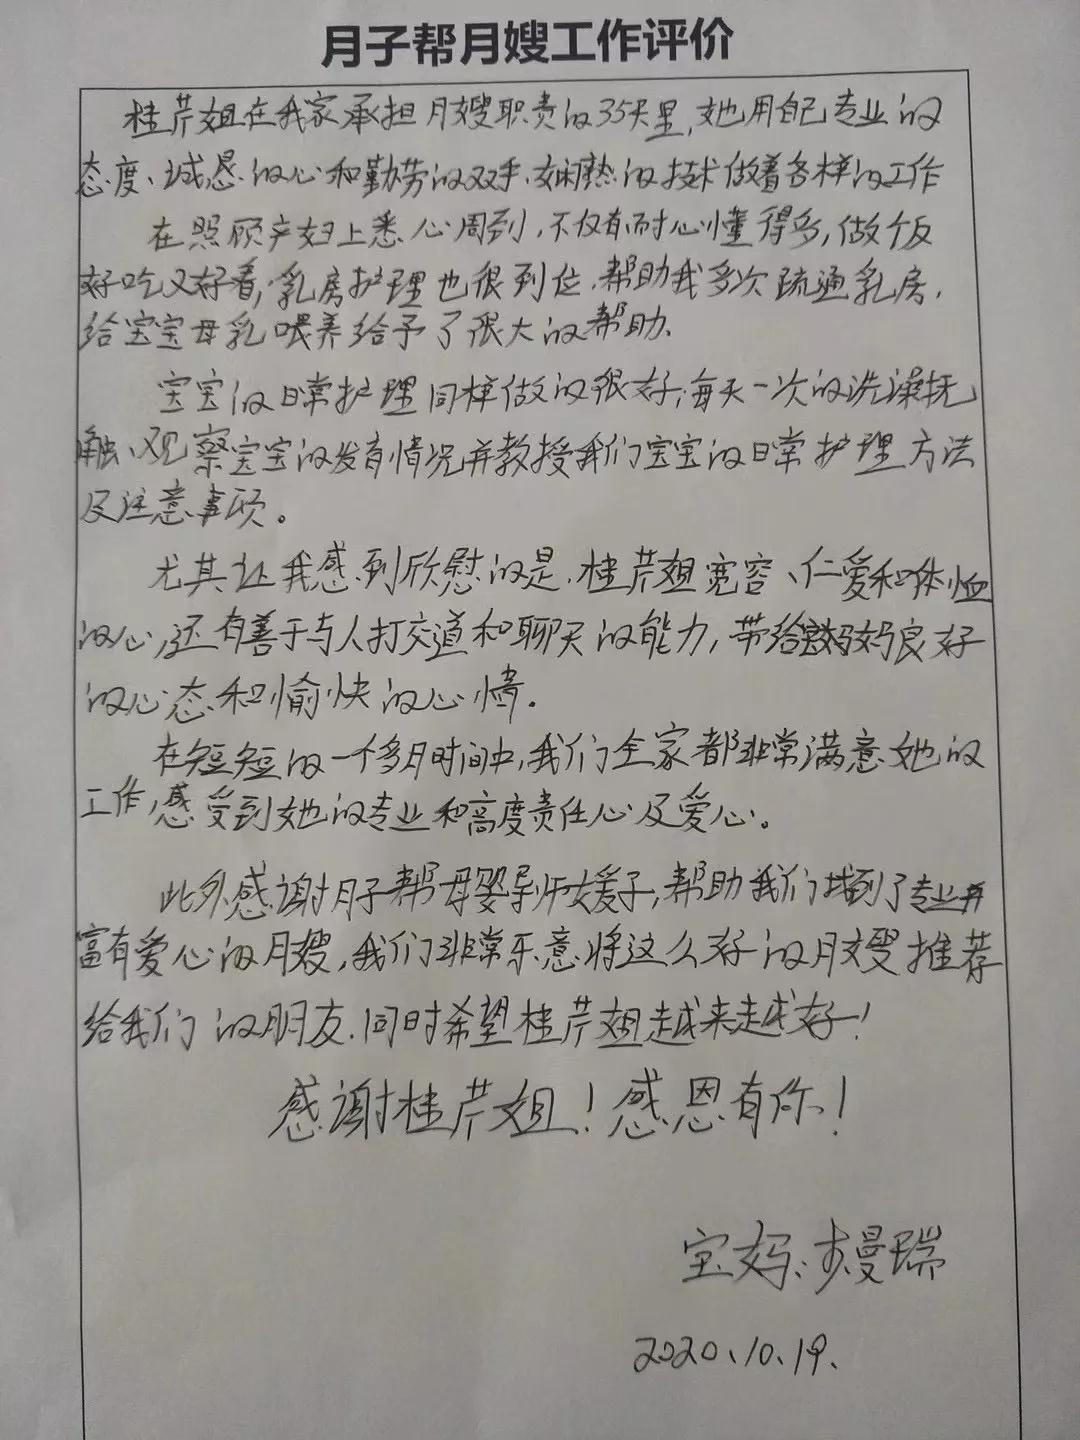 月子帮月嫂工作评价
桂芹姐在我家承担月嫂职责的35天里,她用自己专业的
态度、诚恳的心和勤劳的双手、娴熟的技术做着各样的工作
在照顾产妇上悉心周到,不仅有耐心懂得多,做个饭
好吃又好看;乳房护理也很到位,帮助我多次疏通乳房,
给宝宝母乳喂养给予了很大的帮助.
宝宝的日常护理同样做的很好,每天一次的洗澡抚
触、观察宝宝的发育情况并教授我们宝宝的日常护理方法
及注意事项。
尤其让我感到欣慰的是,桂芹姐宽容、仁爱和体恤
的心,还有善于与人打交道和聊天的能力,带给妈妈良好
的心态和愉快的心情.
在短短的一个多月时间中,我们全家都非常满意她的
工作,感受到她的专业和高度责任心及爱心。
此外感谢月子帮母婴导师媛子,帮助我们找到了专业并
富有爱心的月嫂,我们非常乐意将这么好的月嫂推荐
给我们的朋友.同时希望桂芹姐越来越好!
感谢桂芹姐!感恩有你!
宝妈:曼瑞
2020.10.19.